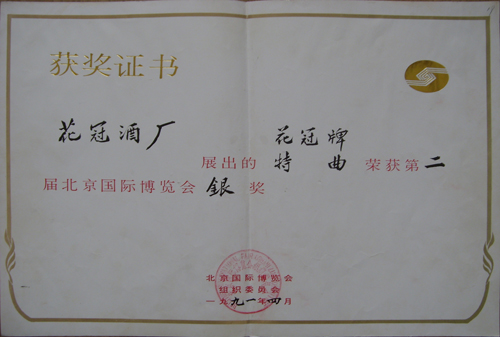 获奖证书
花冠酒厂 展出的 花冠牌特曲 荣获第二
届北京国际博览会 銀 奖
北京国际博览会
组织委员会
一九九一年四月